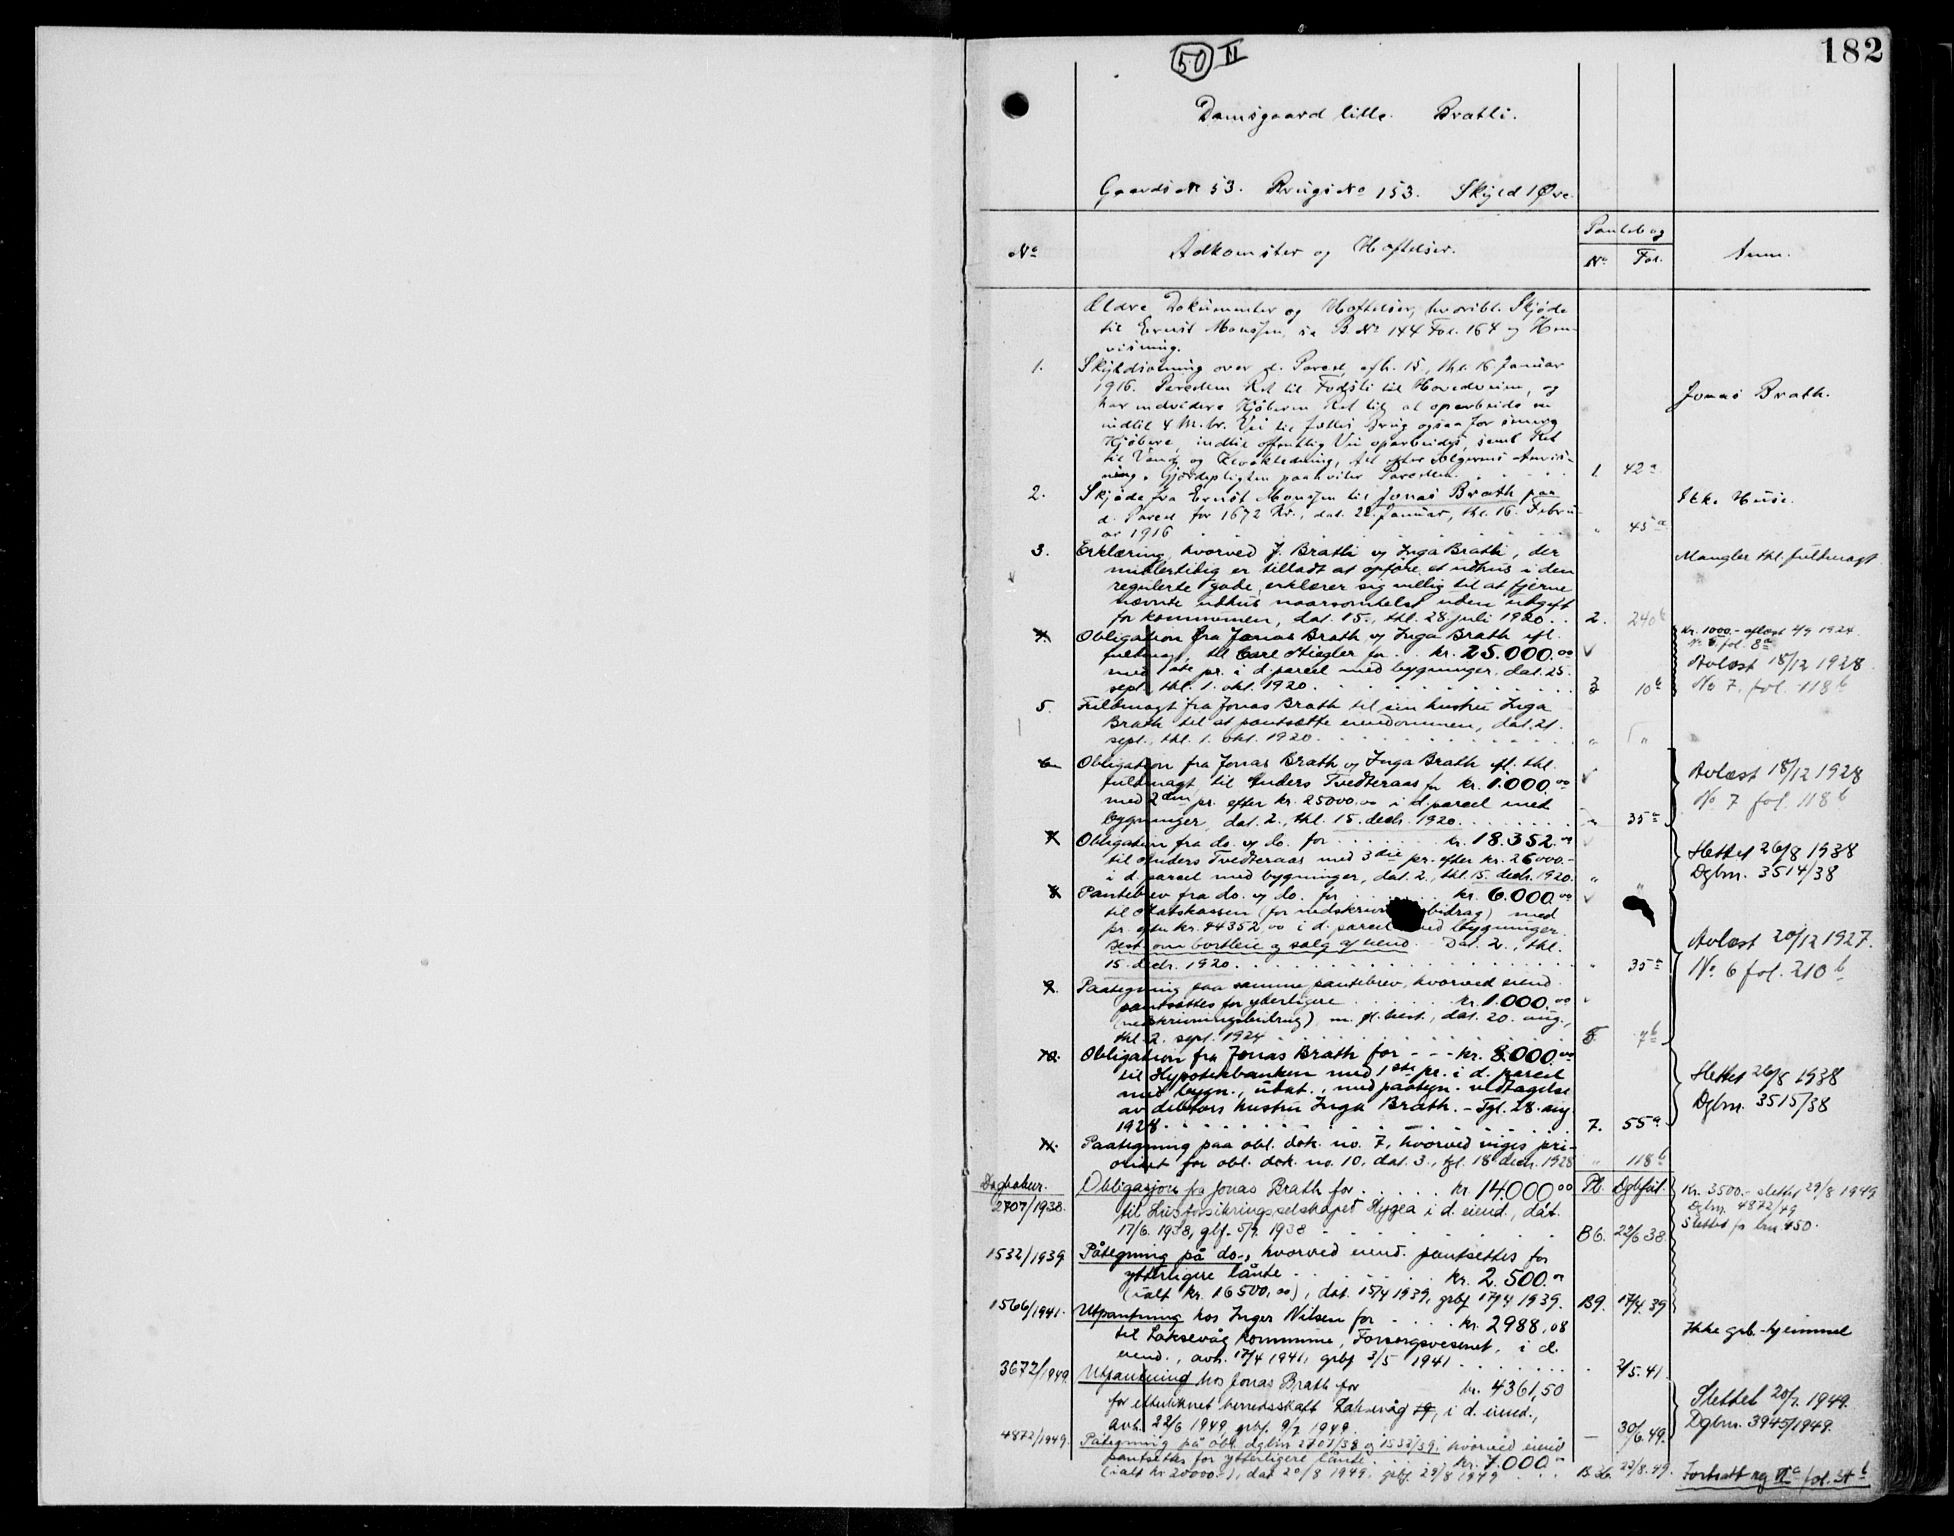 182
50 II
Damsgaard lille. Bratli.
Gaards No 53. Brugs No 153. Skyld 1 Øre.
Pantebog
No Adkomster og Hæftelser. No Fol. Anm.
Ældre Dokumenter og Hæftelser, hvoribl. Skjøde
til Ernst Monssen, se B. No 144 Fol. 164 og Hen-
visning.
1. Skylddeling over d. Parcel, afh. 15, thl. 16 Januar
1916. Parcellen Ret til Fodsti til Hovedveien, og
har endvidere Kjøberen Ret til at oparbeide en
indtil 4 M. br. Vei til fælles Brug ogsaa for øvrige
Kjøbere, indtil offentlig Vei oparbeides, samt Ret
til Vand og Kloakledning, alt efter Sælgerens Anvis-
ning. Gjærdepligten paahviler Parcellen. 1. 42a Jonas Brath.
2. Skjøde fra Ernst Monssen til Jonas Brath paa
d. Parcel for 1672 Kr., dat. 22. Januar, thl. 16. Febru-
ar 1916 " 45a Stk. Huse.
3. Erklæring, hvorved J. Brath og Inga Brath, der
midlertidig er tilladt at opføre et udhus i den
regulerte gade, erklærer sig villig til at fjerne
nævnte udhus naarsomhelst uden utgift
for kommunen, dat. 15., thl. 28. juli 1920. 2. 240b Mangler thl. fuldmagt
4. Obligation fra Jonas Brath og Inga Brath efl.
fuldmagt, til Carl Stiegler for kr. 25.000.00
med 1ste pr. i d. parcel med bygninger, dat. 25.
sept., thl. 1. okt. 1920. 3 10b
Kr. 1000.- aflæst 4/9 1924.
No 5 fol. 8a
Avlæst 18/12 1928
No 7. fol. 118b
5. Fuldmagt fra Jonas Brath til sin hustru Inga
Brath til at pantsætte eiendommen, dat. 21.
sept., thl. 1. okt. 1920. " "
6. Obligation fra Jonas Brath og Inga Brath efl. thl.
fuldmagt, til Anders Tvedteraas for kr. 1.000.00
med 2den pr. efter kr. 25000.00 i d. parcel med
bygninger, dat. 2., thl. 15. decbr. 1920. " 35a
Avlæst 18/12 1928
No 7 fol. 118b
7. Obligation fra do. og do. for kr. 18.352.00
til Anders Tvedteraas med 3die pr. efter kr. 26000.-
i d. parcel med bygninger, dat. 2., thl. 15. decbr. 1920. " "
Slettet 26/8 1938
Dgbnr. 3514/38
8. Pantebrev fra do. og do. for kr. 6.000.00
til Statskassen (for nedskrivningsbidrag) med
pr. efter kr. 44352,00 i d. parcel med bygninger.
Best. om bortleie og salg af eiend. Dat. 2., thl.
15. decbr. 1920. " 35a
Avlæst 20/12 1927.
No. 6 fol. 210b
9. Paategning paa samme pantebrev, hvorved eiend.
pantsættes for yderligere kr. 1.000.00
(nedskrivningsbidrag), m. fl. best., dat. 20. aug.,
thl. 2. sept. 1924 5. 7b
10. Obligation fra Jonas Brath for - - - kr. 8.000.00
til Hypotekbanken med 1ste pr. i d. parcel
med bygn., utat., med paategn. vedtagelse
av debitors hustru Inga Brath. - Tgl. 28. aug
1928. 7. 55a
Slettet 26/8 1938
Dgbnr. 3515/38
11. Paategning paa obl. dok. no. 7, hvorved viges pri-
oritet for obl. dok. no. 10, dat. 3., tgl. 18 decbr. 1928 " 118b
Dagboknr. Pb. Dgbfait.
2707/1938. Obligasjon fra Jonas Brath for kr. 14.000.00
til Livsforsikringsselskapet Hygea i d. eiend., dat.
17/6 1938, glf. 5/7 1938 B6. 22/6 38.
Kr. 3500.- slettet 29/8 1949
Dgbnr. 4872/49
Slettet fr bnr. 450.
1532/1939 Påtegning på do., hvorved eiend. pantsettes for
ytterligere lånte kr. 2.500.00
(ialt kr. 16500,00), dat. 15/4 1939, grbf 17/4 1939. B9. 17/4.39
1566/1941. Utpantning hos Inger Nilsen for kr. 2988,08
til Laksevåg kommune, Forsorgsvesenet, i d.
eiend., avh. 17/4 1941, grbf 3/5 1941 2/5.41 Ikke grb.-hjemmel
3672/1949. Utpantning hos Jonas Brath for kr. 4361,50
for etterliknet herredsskatt Laksevåg, i d. eiend.,
avh. 22/6 1949, grbf. 9/7 1949. — 30/6.49.
Slettet 20/7. 1949.
Dgbnr. 3945/1949.
4872/1949. Påtegning på obl. dgbnr 2707/38 og 1532/39, hvorved eiend
pantsettes for ytterligere lånte kr. 7.000.00
(ialt kr 20000.-), dat 20/8 1949. grbf 29/8 1949 B 36. 22/8.49. Fortsatt reg VIa fol. 34b